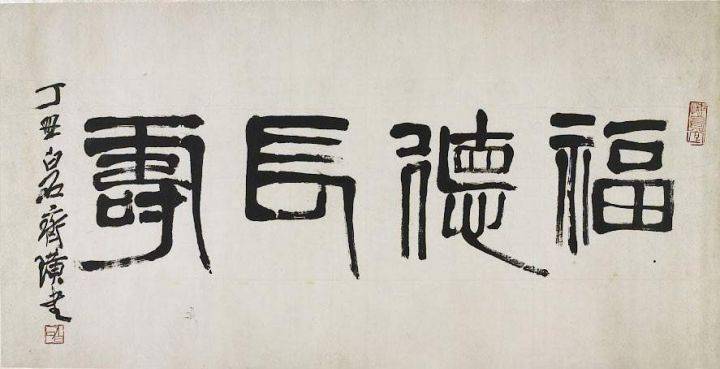 福德長壽
丁丑白石齊璜書